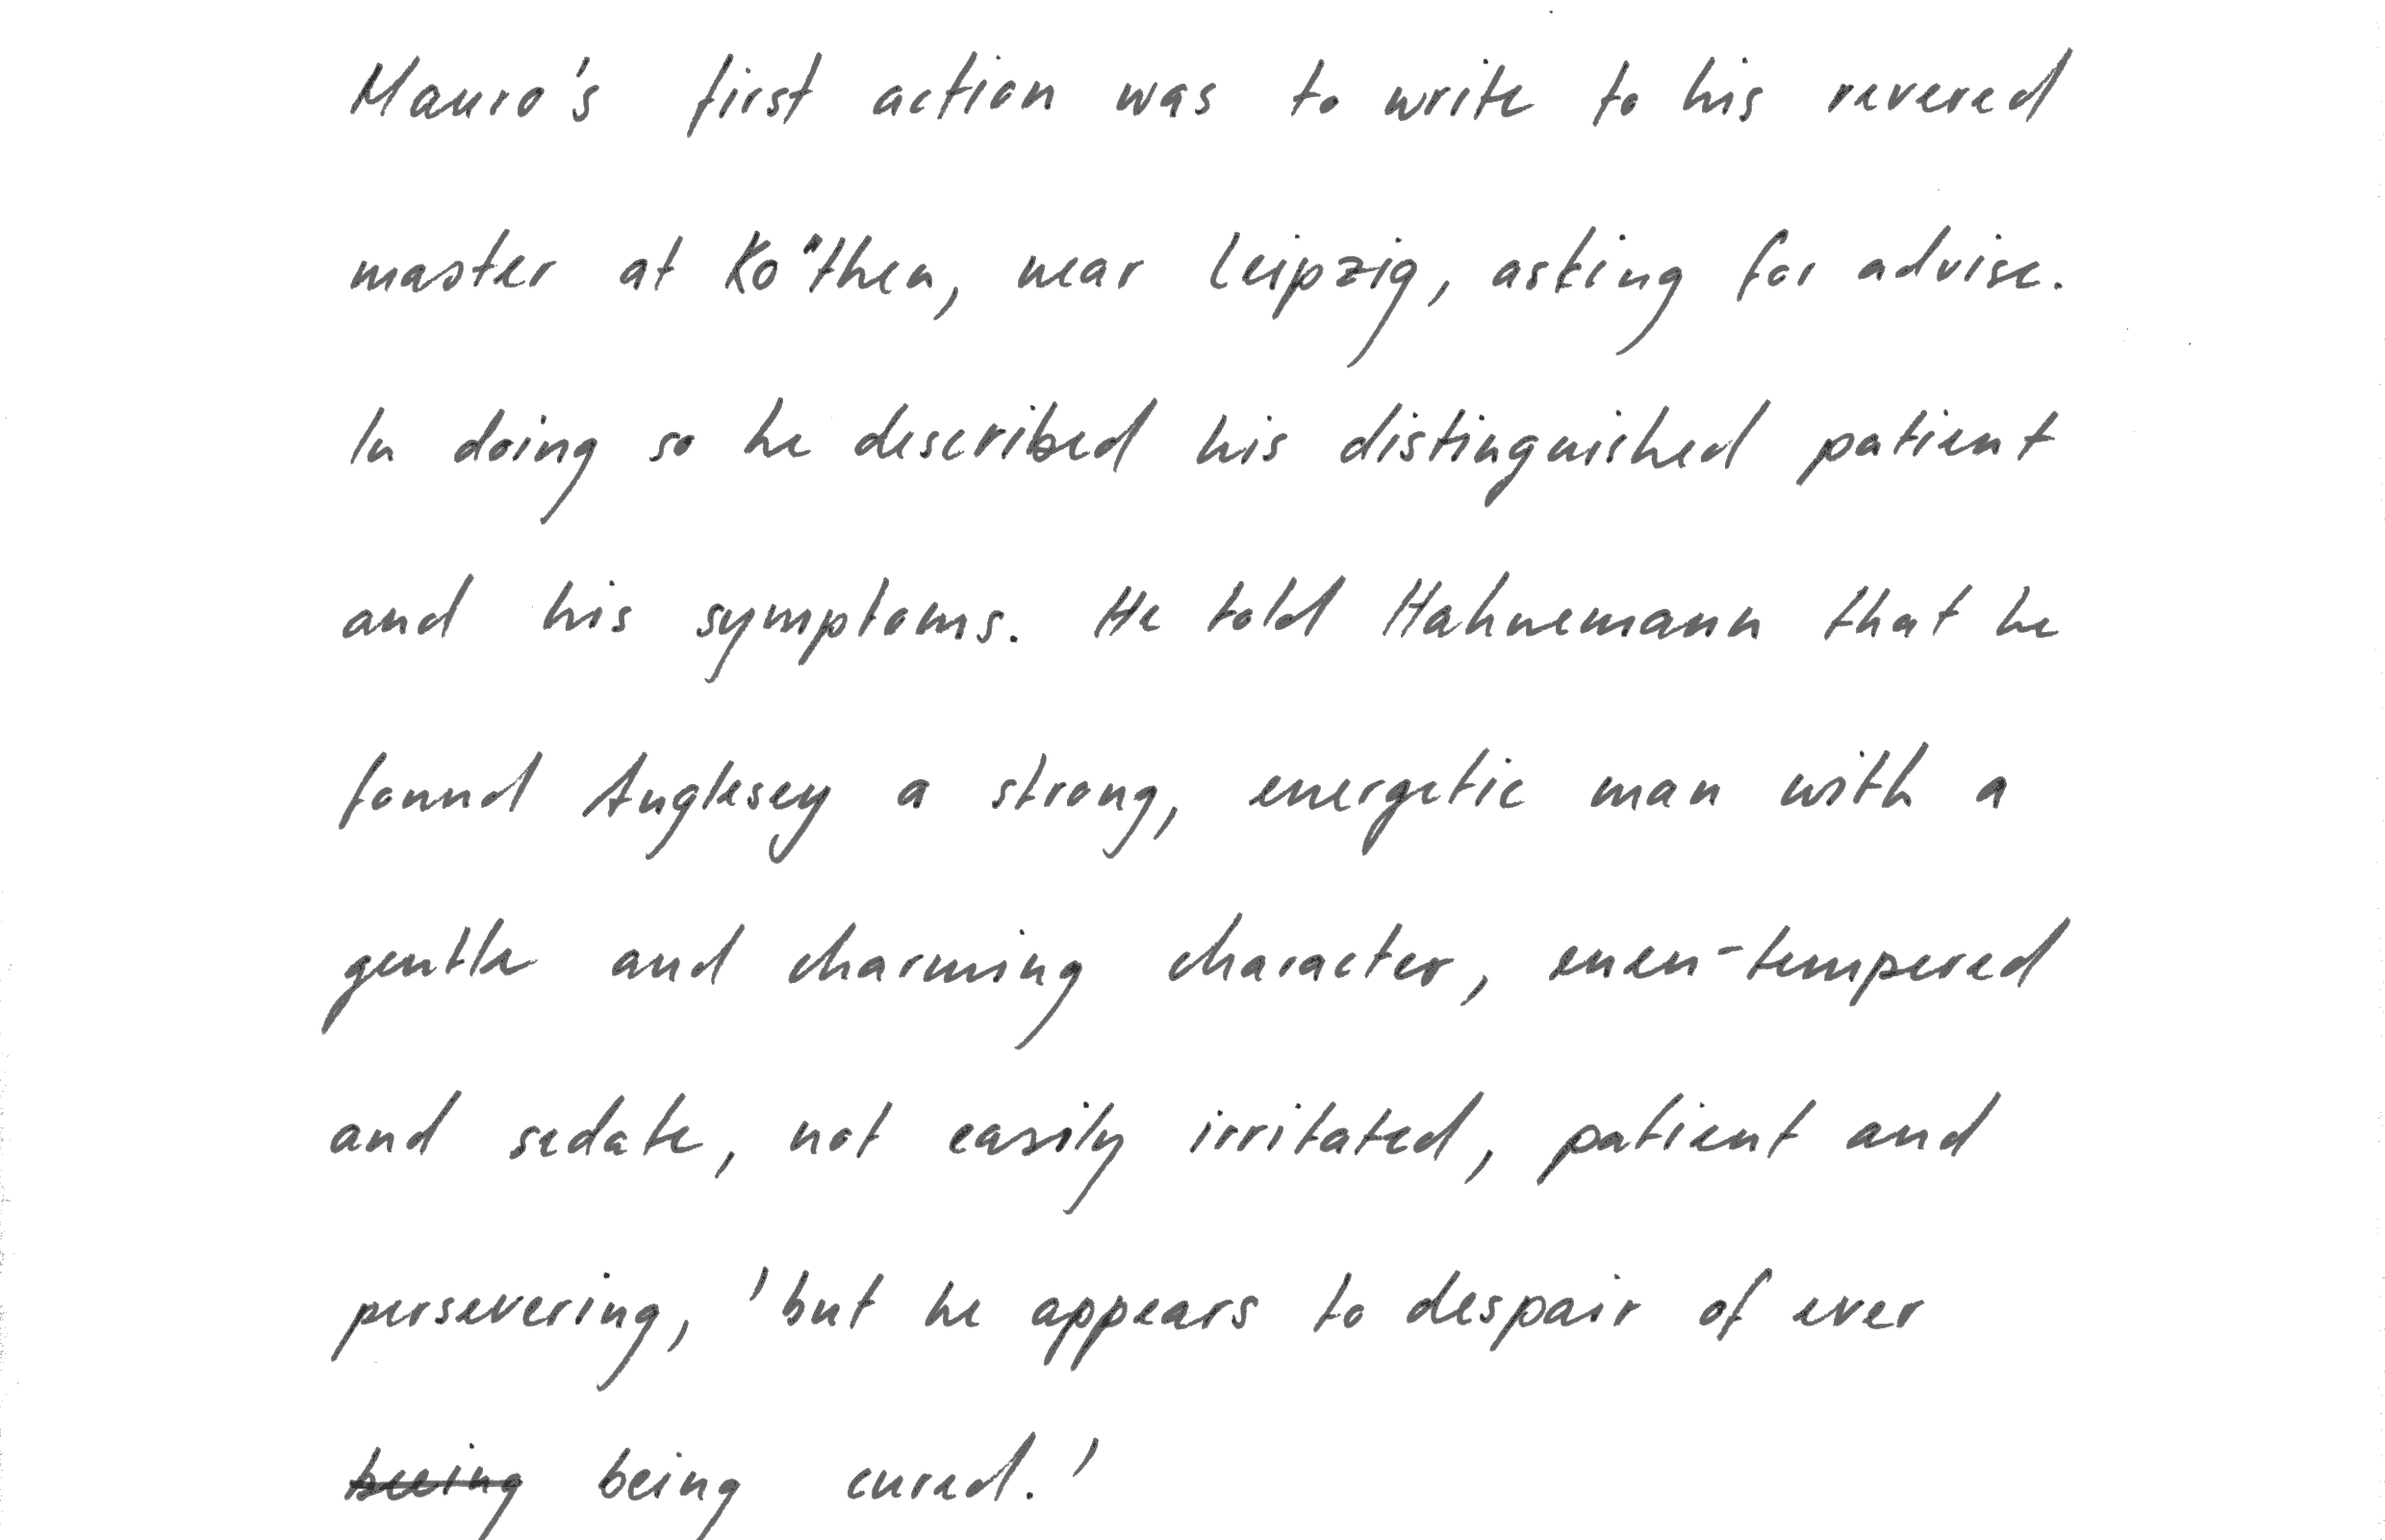 Mauro's first action was to write to his revered
master at Kö"then, near Leipzig, asking for advise.
In doing so he described his distinguished patient
and his symptoms. He told Hahnemann that he
found Anglesey a strong, energetic man with a
gentle and charming character, even-tempered
and sedate, not easily irritated, patient and
persevering, 'but he appears to despair of ever
being cured.'